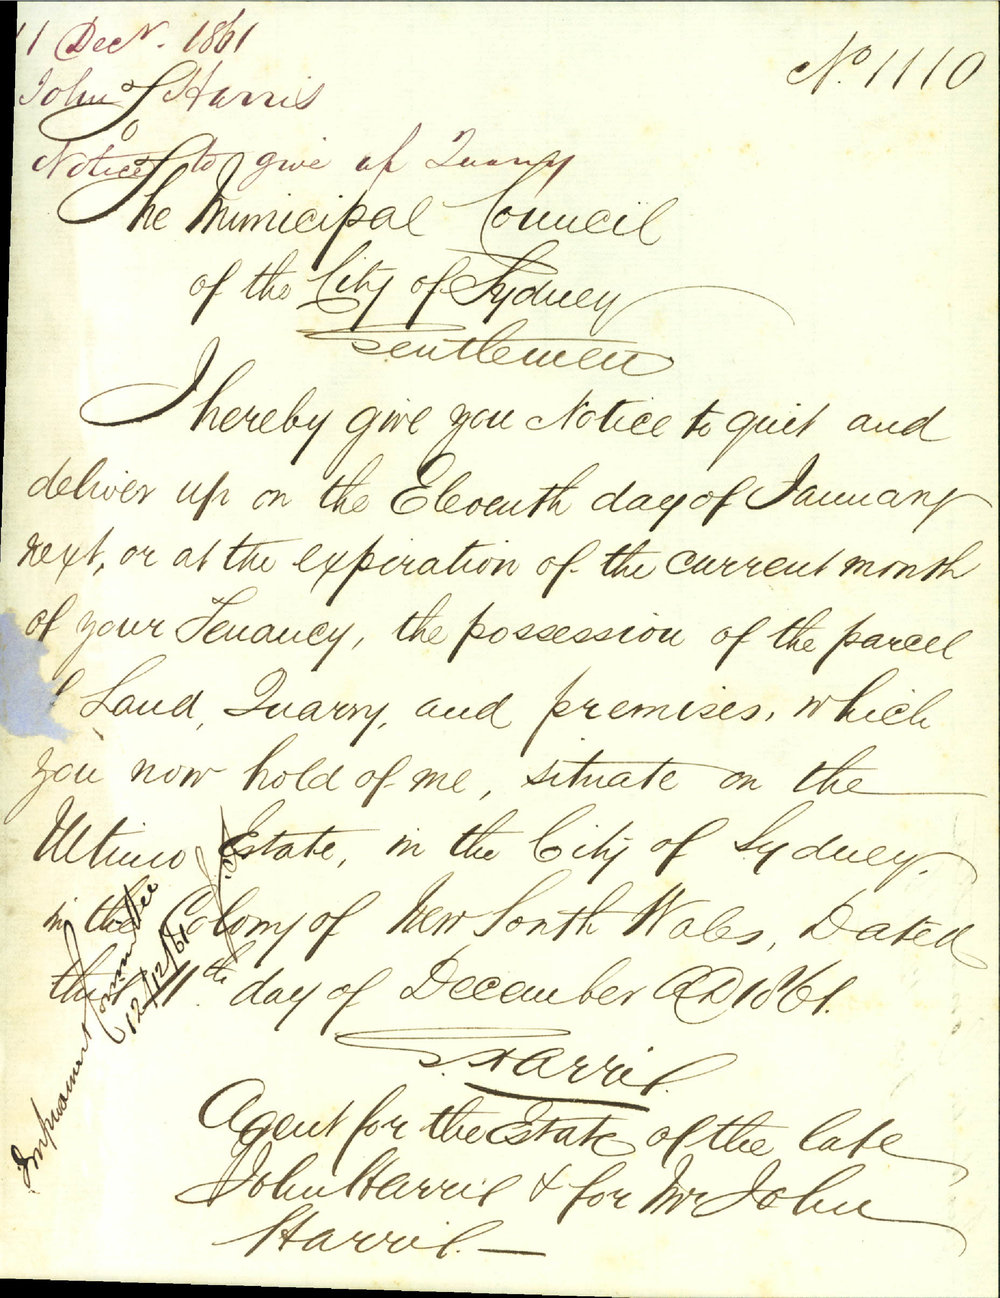 11 Decr. 1861
John Harris
Notice to give up Quarry
No. 1110
The Municipal Council
of the City of Sydney
Gentlemen
I hereby give you Notice to quit and
deliver up on the Eleventh day of January
next, or at the expiration of the current month
of your Tenancy, the possession of the parcel
of Land, Quarry, and premises, which
you now hold of me, situate on the
Ultimo Estate, in the City of Sydney,
in the Colony of New South Wales, Dated
this 11th day of December AD 1861.
Harris.
Agent for the Estate of the late
John Harris & for Mr John
Harris.
Improvement Committee
12/12/61